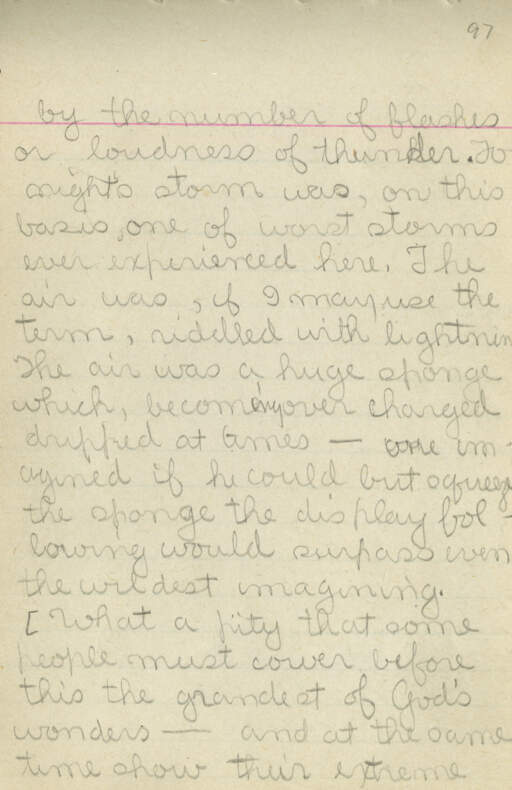 97
by the number of flashes
or loudness of thunder. To
nights storm was, on this
basis, one of worst storms
ever experienced here. The
air was, if I may use the
term, riddled with lightnin
The air was a huge sponge
which, becoming over charged
dripped at times — one im-
agined if he could but squeeze
the sponge the display fol-
lowing would surpass even
the wildest imagining.
[ What a pity that some
people must cower before
this the grandest of God's
wonders — and at the same
time show their extreme